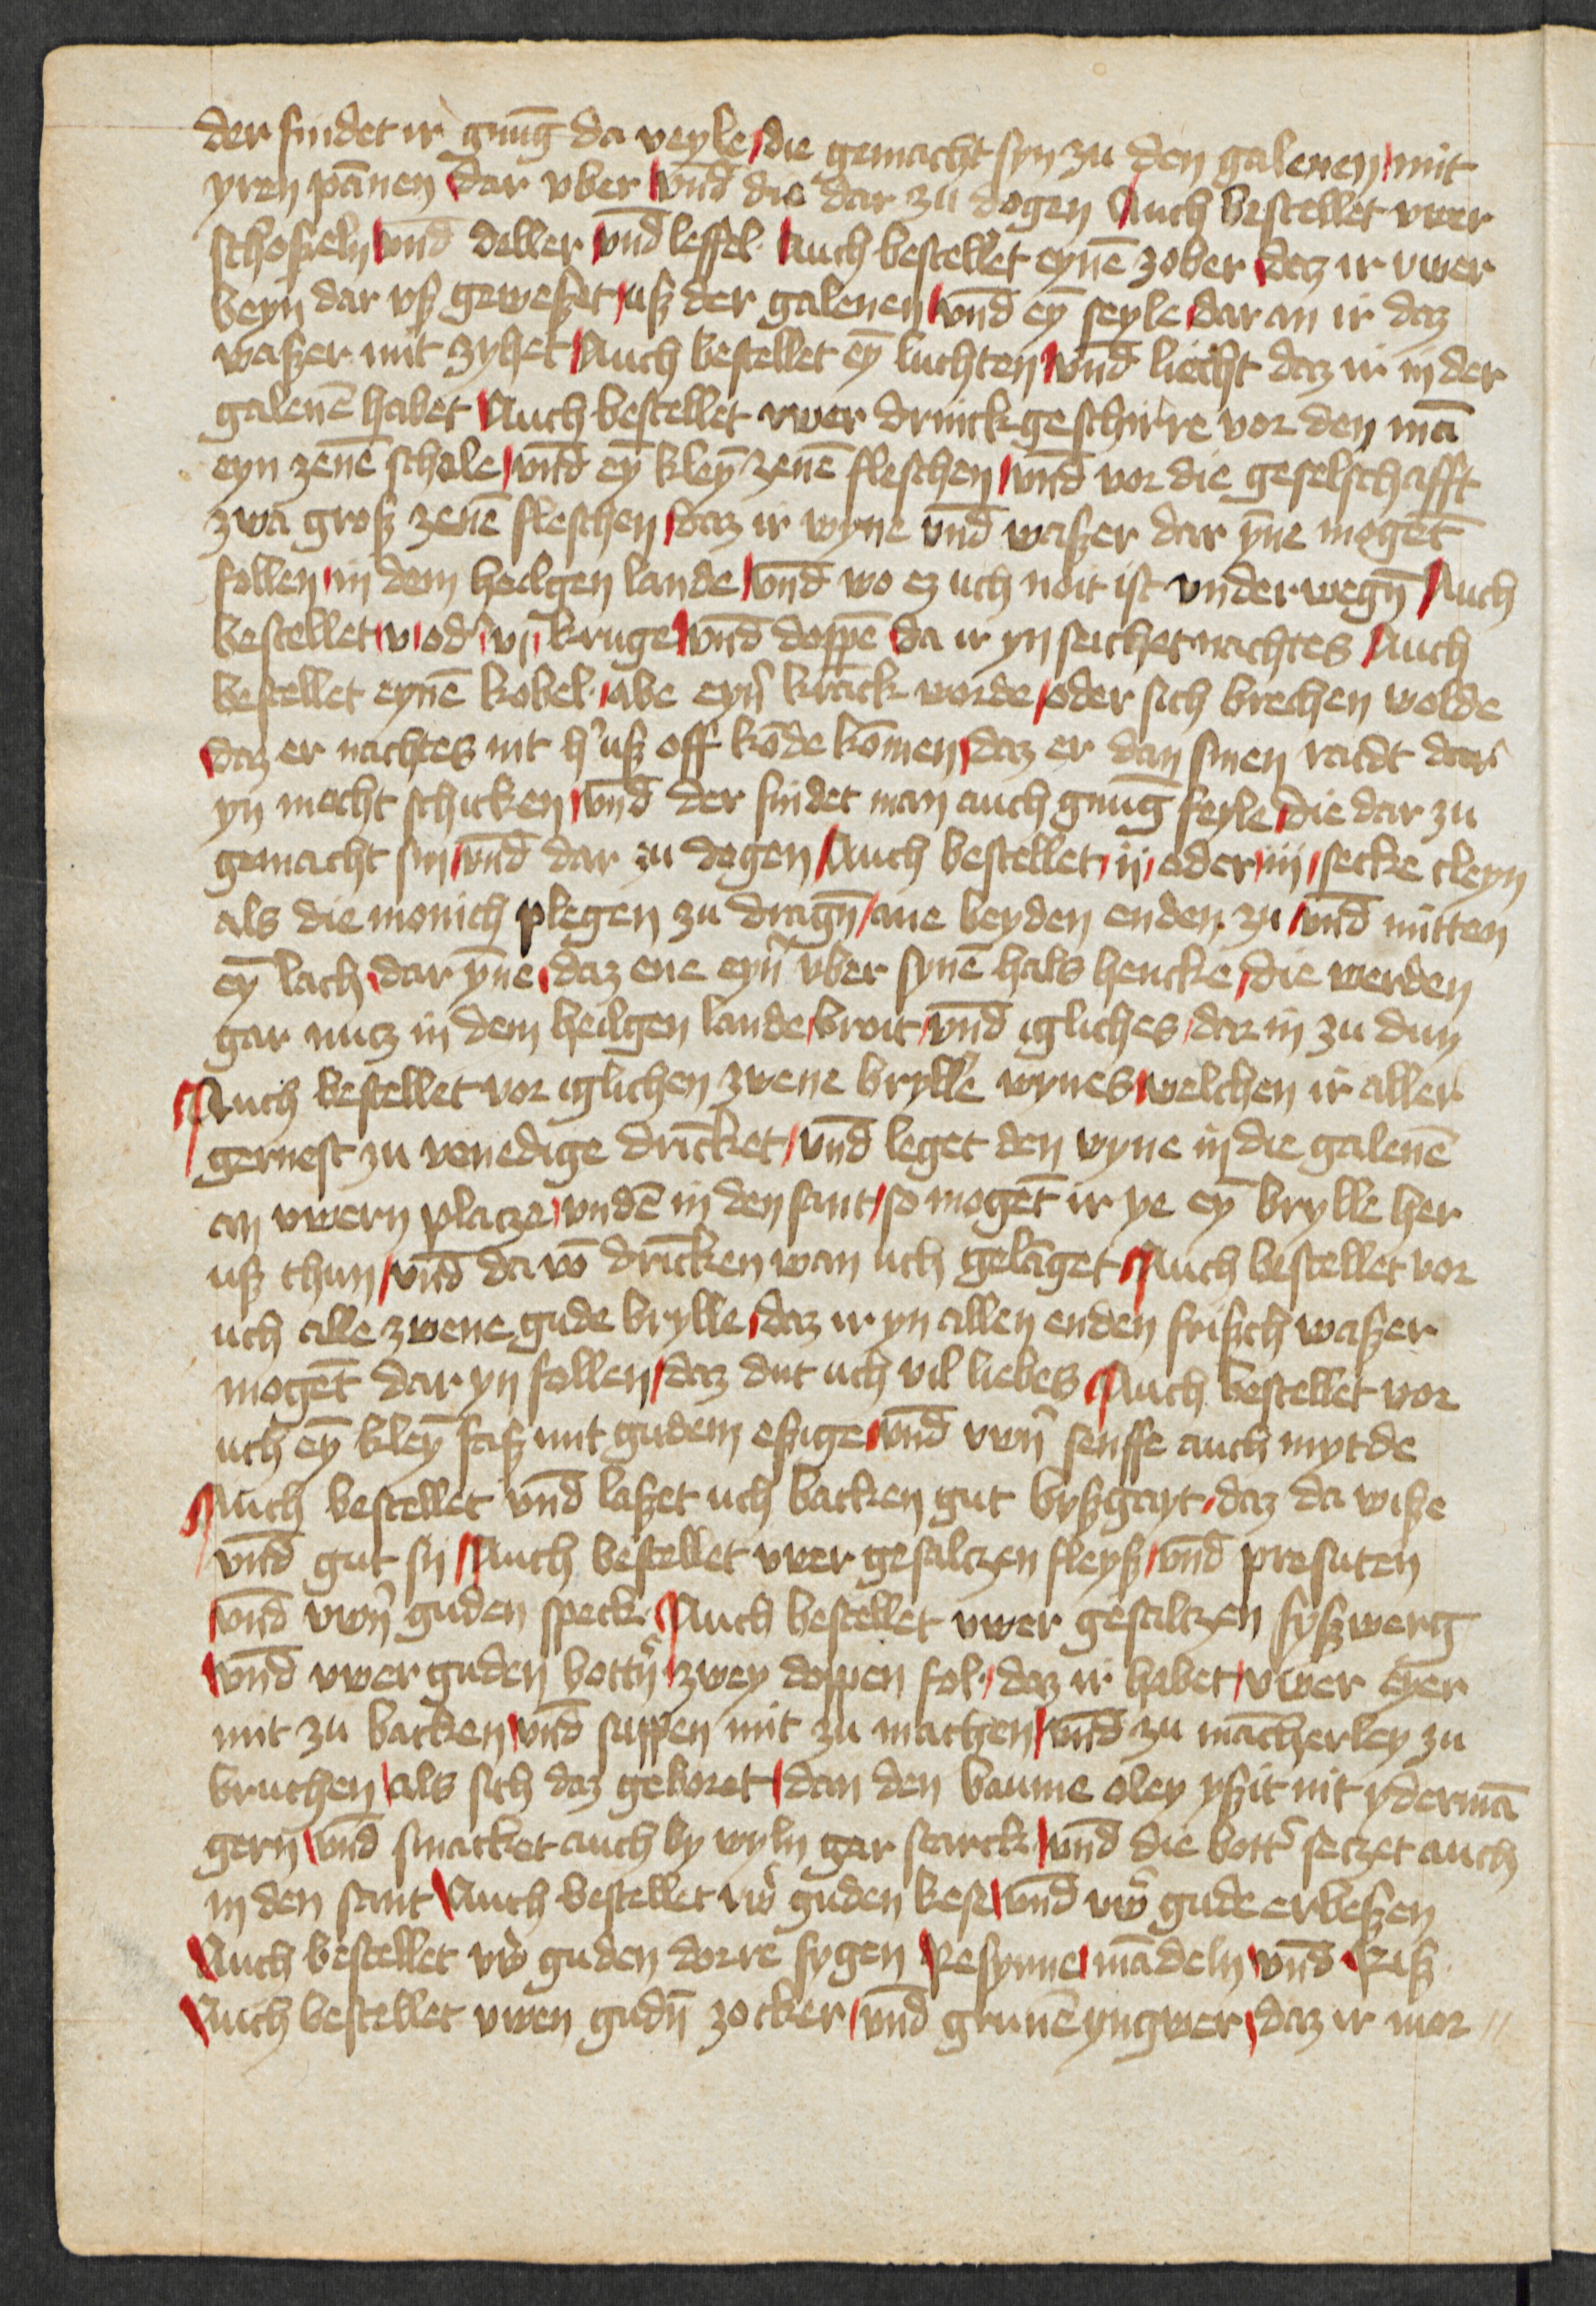 der findet ir gnūg da veyle / die gemacht syn zu den galeuen / mit
yren pānen dar vber / vnd die dar zu dogen Auch bestellet vwer
schoßeln / vnd deller / vnd leffel · Auch bestellet eynē zober / daz ir vwer
beyn dar vß geweßet / uß der galeuen / vnd ey̅ seyle / dar an ir daz
waßer mit zyhet / Auch bestellet ey̅ luchten / vnd liecht daz ir in der
galeuē habet / Auch bestellet vwer drinck geschirre vor den mā
eyn zenē schale / vnd ey̅ kley̅ zenē fleschen / vnd vor die geselschafft
zwa groß zenē fleschen / daz ir wyne vnd waßer dar y̅ne mogēt
follen / in dem heilgen lande / vnd wo ez uch noit ist vnderwegn̄ / Auch
bestellet / v / od' / vj / kruge / vnd doppē da ir yn seichet nachtes / Auch
bestellet eynē kobel · / abe eyn' kranck worde / oder sich brechen wolde
daz er nachtes nit h'uß off kōde kōmen / daz er dan sinen raidt dar
yn mocht schicken / vnd der findet man auch gnūg feyle / die dar zu
gemacht sin / vnd dar zu dogen / Auch bestellet / ij / oder / iij / secke cleyn
als die monich plegen zu dragn̄ / ane beyden enden zu / vnd mitten
ey̅ lach / dar y̅ne / daz ene eyn' vber synē hals hencke / die werden
gar nutz in dem heilgen lande / broit / vnd igliches / dar in zu dun
Auch bestellet vor iglichen zwene brylle wynes / welchen ir aller
gernest zu venedige drīcket / vnd leget den wyne in die galeuē
an vwern platze / vndē in den sant / so mogēt ir ye ey̅ brylle her
uß thun / vnd da vō drīcken wan uch gelāget / Auch bestellet vor
uch alle zwene gude brylle / daz ir yn allen enden frißch waßer
mogēt dar yn follen / daz dut uch vil liebes / Auch bestellet vor
uch ey̅ kley̅ faß mit gudem eßige / vnd vwn' senffe auch mytde
Auch bestellet vnd laßet uch backen gut byßgayt / daz da wiße
vnd gut sij / Auch bestellet vwer gesaltzen fleyß / vnd presuten
vnd vwn' guden speck / Auch bestellet vwer gesaltzen fyßwerg
vnd vwer guden bottn' / zwey doppen fol · / daz ir habet / vwer eyer
mit zu backen / vnd suppen mit zu machen / vnd zu mācherley zu
bruchen / als sich daz geboret / dan den baume oley yßit nit ydermā
gern / vnd smacket auch by wyln gar starck / vnd die bott' setzet auch
in den sant / Auch bestellet vw' guden kese / vnd vw' gude erbeßen
Auch bestellet vw' guden dorre fygen / Resyune / mādeln / vnd Riß
Auch bestellet vwen gudn̄ zocker / vnd grunē yngwer / daz ir mor //